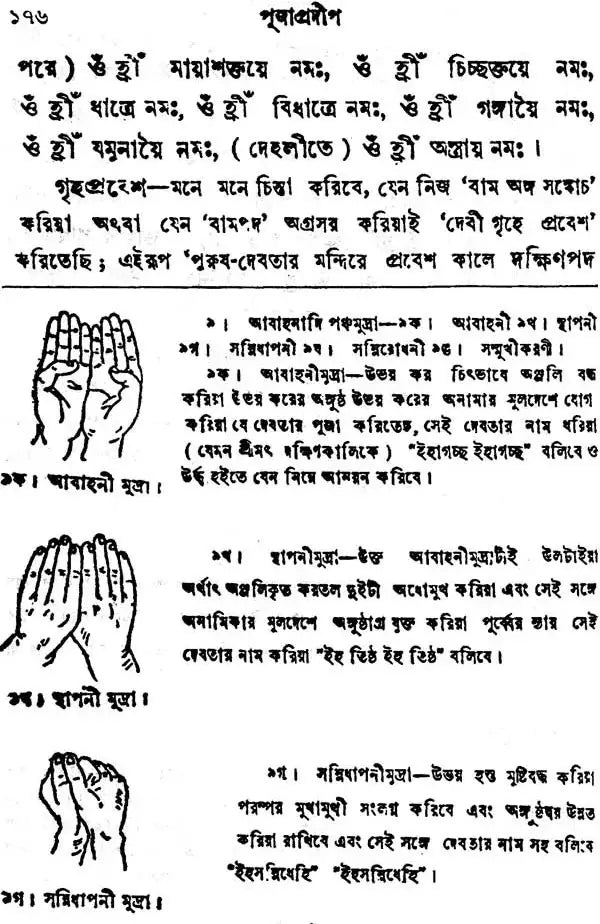 ১৭৬
পূজাপ্রদীপ
পরে) ওঁ হ্রীঁ মায়াশক্তয়ে নমঃ, ওঁ হ্রীঁ চিচ্ছক্তয়ে নমঃ,
ওঁ হ্রীঁ ধাত্রে নমঃ, ওঁ হ্রীঁ বিধাত্রে নমঃ, ওঁ হ্রীঁ গঙ্গায়ৈ নমঃ,
ওঁ হ্রীঁ যমুনায়ৈ নমঃ, (দেহলীতে) ওঁ হ্রীঁ অস্ত্রায় নমঃ।
গৃহপ্রবেশ—মনে মনে চিন্তা করিবে, যেন নিজ ‘বাম অঙ্গ সঙ্কোচ’
করিয়া অথবা যেন ‘বামপদ’ অগ্রসর করিয়াই ‘দেবী গৃহে প্রবেশ’
করিতেছি; এইরূপ ‘পুরুষ-দেবতার মন্দিরে প্রবেশ কালে দক্ষিণপদ
৯। আবাহনাদি পঞ্চমুদ্রা—৯ক। আবাহনী ৯খ। স্থাপনী
৯গ। সন্নিধাপনী ৯ঘ। সন্নিরোধনী ৯ঙ। সম্মুখীকরণী।
৯ক। আবাহনীমুদ্রা—উভয় কর চিৎভাবে অঞ্জলি বদ্ধ
করিয়া উভয় করের অঙ্গুষ্ঠ উভয় করের অনামার মূলদেশে যোগ
করিয়া যে দেবতার পূজা করিতেছ, সেই দেবতার নাম ধরিয়া
(যেমন শ্রীমৎ দক্ষিণকালিকে) “ইহাগচ্ছ ইহাগচ্ছ” বলিবে ও
উর্দ্ধ হইতে যেন নিম্নে আনয়ন করিবে।
৯ক। আবাহনী মুদ্রা।
৯খ। স্থাপনীমুদ্রা—উক্ত আবাহনীমুদ্রাটীই উলটাইয়া
অর্থাৎ অঞ্জলিকৃত করতল দুইটী অধোমুখ করিয়া এবং সেই সঙ্গে
অনামিকার মূলদেশে অঙ্গুষ্ঠাগ্র যুক্ত করিয়া পূর্ব্বের ন্যায় সেই
দেবতার নাম করিয়া “ইহ তিষ্ঠ ইহ তিষ্ঠ” বলিবে।
৯খ। স্থাপনী মুদ্রা।
৯গ। সন্নিধাপনীমুদ্রা—উভয় হস্ত মুষ্টিবদ্ধ করিয়া
পরস্পর মুখামুখী সংলগ্ন করিবে এবং অঙ্গুষ্ঠদ্বয় উন্নত
করিয়া রাখিবে এবং সেই সঙ্গে দেবতার নাম সহ বলিবে
“ইহসন্নিধেহি” “ইহসন্নিধেহি”।
৯গ। সন্নিধাপনী মুদ্রা।